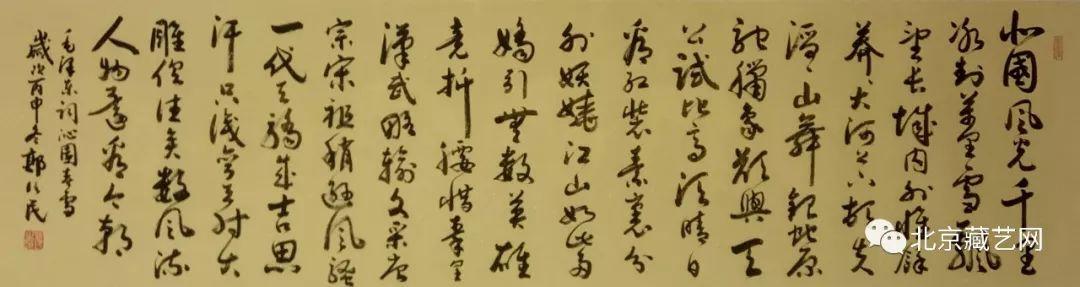 北國風光千里
冰封萬里雪飄
望長城内外惟餘
莽々大河上下頓失
滔々山舞銀蛇原
馳臘象欲與天
公試比高須晴日
看紅裝素裹分
外妖嬈江山如此多
嬌引無數英雄
竟折腰惜秦皇
漢武略輸文采唐
宗宋祖稍遜風騷
一代天驕成吉思
汗只識彎弓射大
雕俱往矣數風流
人物還看今朝
毛澤東詞沁園春雪
歲次丙申冬鄭民
北京藏艺网